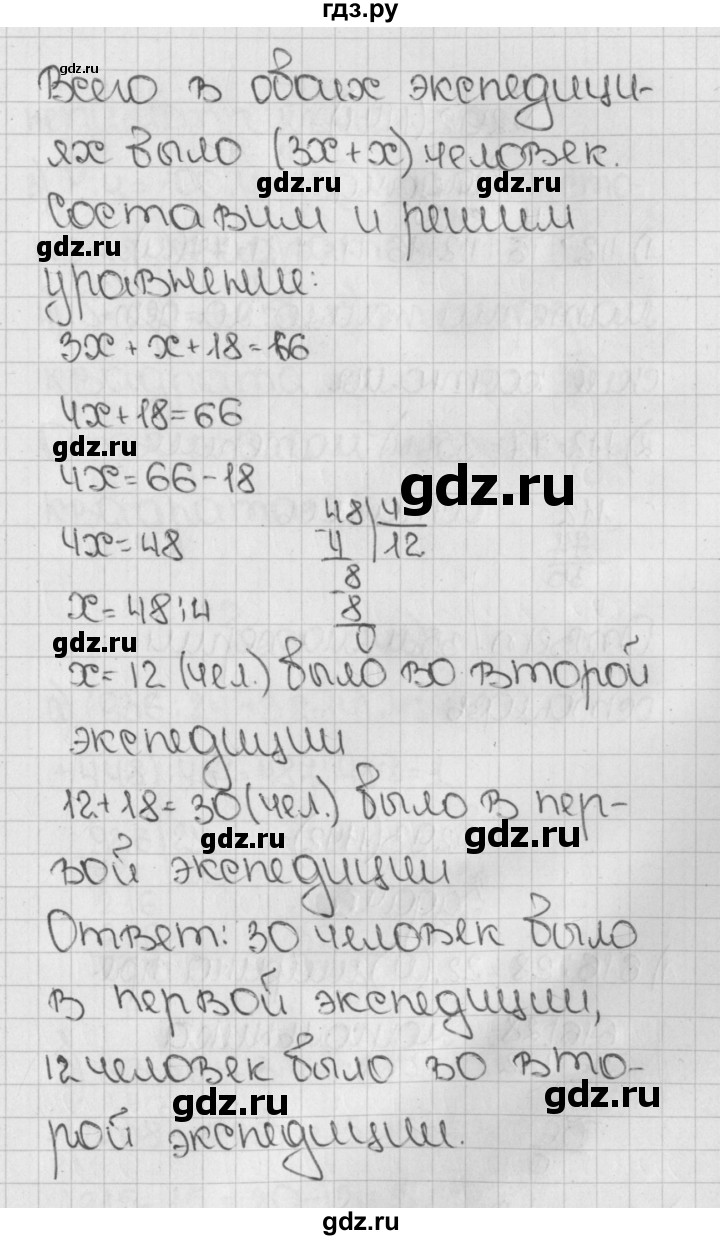 гдз.ру
gdz.ru
Всего в обоих экспедици-
ях было (3x+x) человек.
gdz.ru gdz.ru
Составим и решим
gdz.ru
уравнение:
3x+x+18=66
4x+18=66
gdz.ru
4x=66-18
gdz.ru
4x=48
48 4
4 12
8
8
0
x=48:4
gdz.ru
x=12 (чел.) было во второй
экспедиции
12+18=30(чел.) было в пер-
gdz.ru gdz.ru
вой экспедиции
Ответ: 30 человек было
в первой экспедиции,
12 человек было во вто-
gdz.ru gdz.ru
рой экспедиции.
gdz.ru